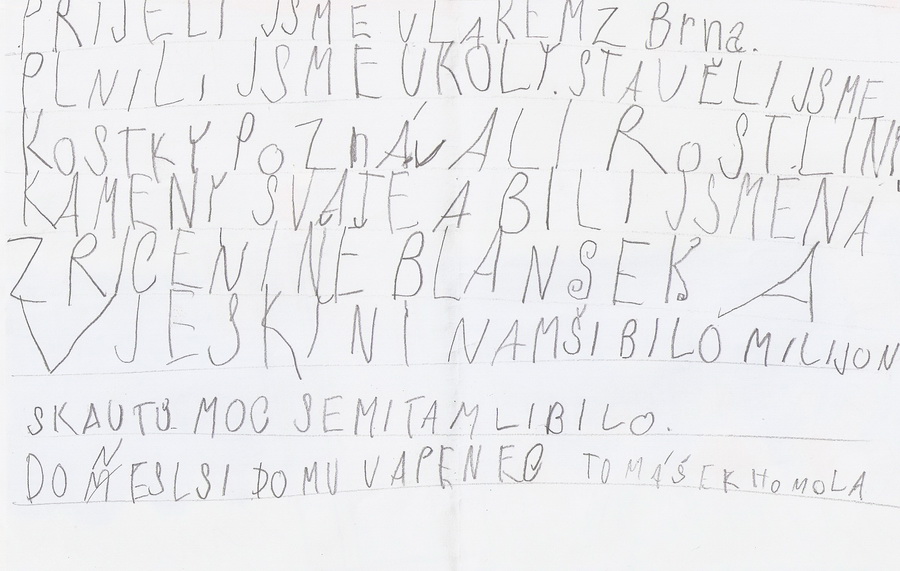 PRIJELI JSME VLAKEM Z Brna.
PLNILI JSME ÚKOLY. STAVĚLI JSME
KOSTKY POZnÁvALI ROSTLINY
KAMENY SVAJE A BILI JSME NA
ZRICENINE BLANSEK A
V JESKINI NAMŠI BILO MILIJON
SKAUTU. MOC SEMI TAM LIBILO.
DONESL SI DOMU VAPENEC TOMÁŠEK HOMOLA